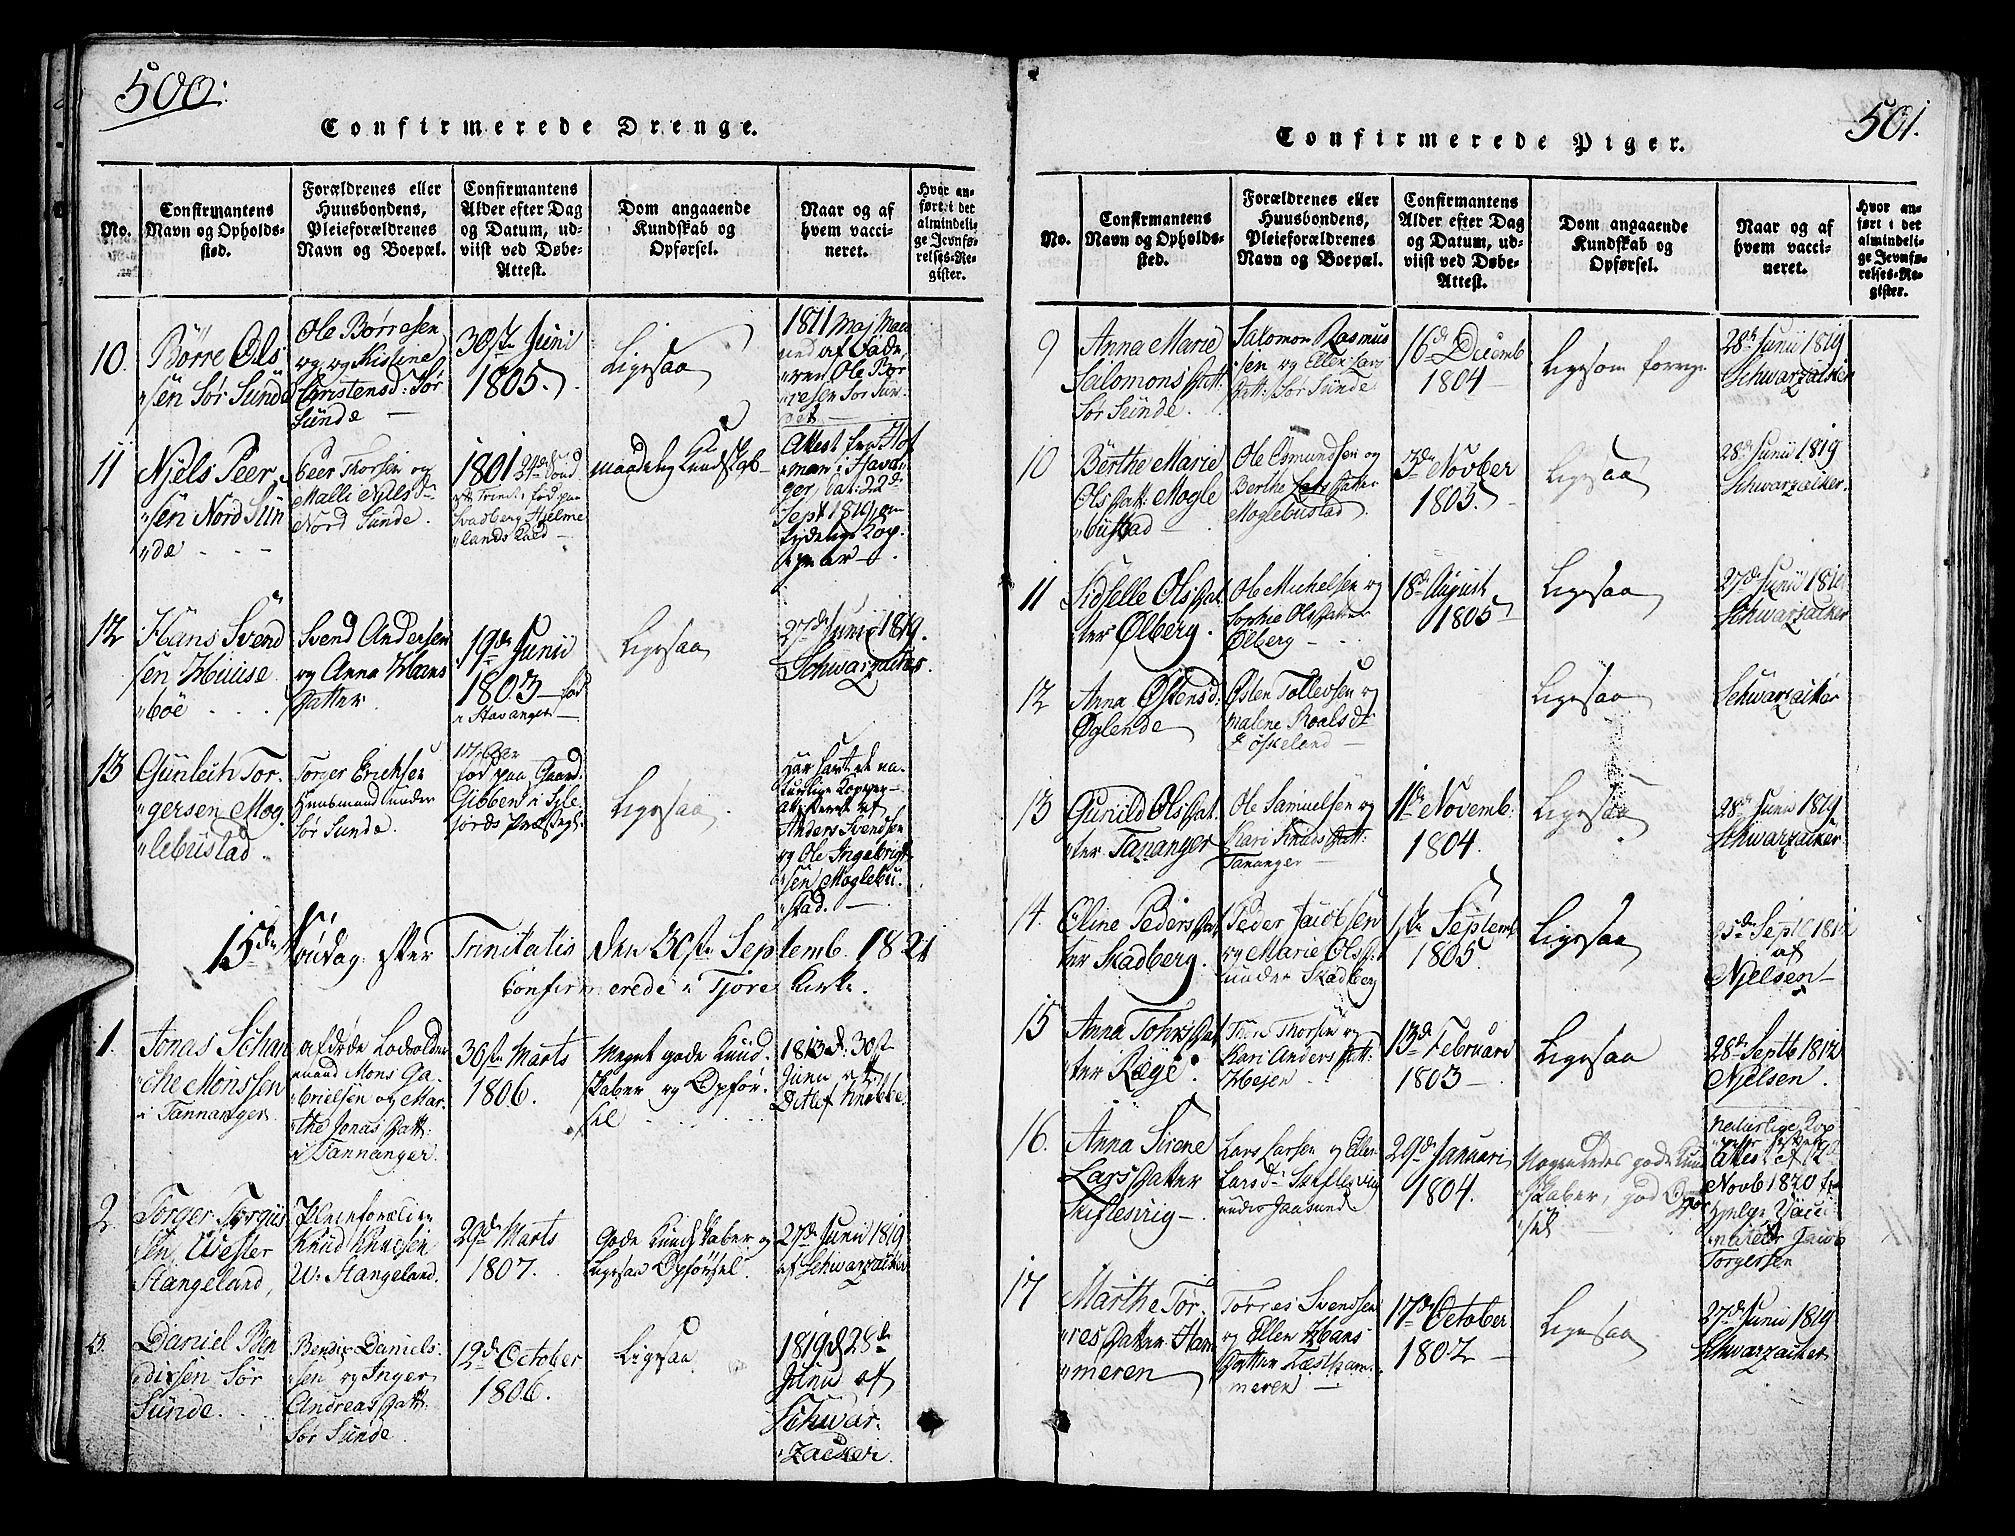 500.
Confirmerede Drenge.
No.
Confirmantens
Navn og Opholds-
sted.
Forældrenes eller
Huusbondens,
Pleieforældrenes
Navn og Boepæl.
Confirmantens
Alder efter Dag
og Datum, ud-
viist ved Døbe-
Attest.
Dom angaaende
Kundskab og
Opførsel.
Naar og af
hvem vacci-
neret.
Hvor an-
ført i det
almindeli-
ge Jevnfø-
relses-Re-
gister.
10.
Børre Ols
sen Sør Sunde
Ole Børresen
og Kistine
Christensd: Sør
Sunde
30te Juni
1805.
Ligesaa
1811 Maj Maa
ned af Fade
ren Ole Bør
resen Sør Sun
det
11
Njels Peer
sen Nord Sun
de
Peer Thorsen og
Malli Niels
Nord Sunde.
1801 24de Sønd.
Trinit: fød paa
Svadberg Hjelme
lands Præst
maadelig Kundskab
Attest fra Hof
man i Stavan
ger, Dat: 22de
Sept 1819, om
tydelige Kop
par
12
Hans Svend
sen Huuse
bøe
Svend Andersen
og Anna Hans
Datter.
19de Junii
1803 fød
i Stavanger
Ligesaa
27de Junii 1819.
Schwarzacker
13
Gunleik Tor
gersen Mog
lebustad.
Torger Erichsen
Huusmand under
Sør Sunde.
17 Aar
fød paa Gaard
Gibben i Sile
jords Præstegl.
Ligesaa.
har havt de na
turlige Kopper
attesteret af
Anders Svendsen
og Ole Ingebrigt
sen Moglebu
stad.
15de Søndag efter Trinitatis den 30te Septemb. 1821
Confirmerede i Tjore Kirke.
1.
Jonas Schan
che Monssen
i Tannanger
afdøde Lodsolder
mand Mons Ga
brielsen og Mar
the Jonas Datt:
i Tannanger.
30te Marts
1806.
Meget gode Kund
skaber og Opfør
sel
1813 d: 30te
Junii af
Ditlef Knobbe
2
Torger Torgus
sen Vester
Stangeland,
Pleieforældre
Knud Knudsen
W: Stangeland.
29de Marts
1807.
Gode Kundskaber og
Ligesaa Opførsel.
27de Junii 1819
af Schwarzacker
3.
Daniel Ben
dixen Sør
Sunde.
Bendix Daniels
sen og Inger
Andreas Datt:
Sør Sunde.
12de October
1806.
Ligesaa
1819 d 28de
Junii af
Schwar
zacker.
501.
Confirmerede Piger.
No.
Confirmantens
Navn og Opholds-
sted.
Forældrenes eller
Huusbondens,
Pleieforældrenes
Navn og Boepæl.
Confirmantens
Alder efter Dag
og Datum, ud-
viist ved Døbe-
Attest.
Dom angaaende
Kundskab og
Opførsel.
Naar og af
hvem vacci-
neret.
Hvor an-
ført i det
almindeli-
ge Jevnfø-
relses-Re-
gister.
9
Anna Marie
Salomons Datt.
Sør Sunde.
Salomon Rasmus
sen og Ellen Lars
Datt: Sør Sunde
16de Decemb
1804
Ligesom forrige
28de Junii 1819
Schwarzacker
10
Berthe Marie
Ols Datt: Mogle
bustad
Ole Osmundsen og
Berthe Lars Datter
Moglebustad.
3de Novber
1805.
Ligesaa
28de Junii 1819
Schwarzacker.
11
Sidselle Ols Dat
ter Ølberg.
Ole Michelsen og
Sophie Ols Datter
Ølberg
18de August
1805
Ligesaa
27de Junii 1819
Schwarzacker
12
Anna Østensd.
Øglende
Østen Tollevsen og
Malene Roalsdt
Ligesaa
Schwarzacker
13
Gunild Ols Dat
ter Tananger
Ole Samuelsen og
Kari Knuds Datt:
Tananger
11de Novemb:
1804.
Ligesaa
28de Junii 1819
Schwarzacker
14.
Oline Peders Dat
ter Skadberg.
Peder Jacobsen
og Marie Ols D:
under Skadberg
1ste Septemb
1805.
Ligesaa
25de Septe 1812
af
Njelsen
15
Anna Tohrs Dat
ter Rege.
Thore Thorsen og
Kari Anders Datt:
13de Februari
1803
Ligesaa
28de Septb 1812
Njelsen.
16.
Anna Sirene
Lars Datter
Skiflesvig
Lars Larsen og Ellen
Larsd: Skiflesvig
under Jaasund
29de Januari
1804.
Nogenledes gode Kund
skaber, god Opfør
sel
Naturlige Kop
per efter
Attest af 17de
Novb 1820 fra
Hjelpe Vacci
natør Jacob
Torgersen
17
Marthe Tør
res Datter Ham
meren
Tørres Svendsen
og Ellen Hans
Datter Tæstham
meren
17de October
1802
Ligesaa.
27de Junii 1819
Schwarzacker